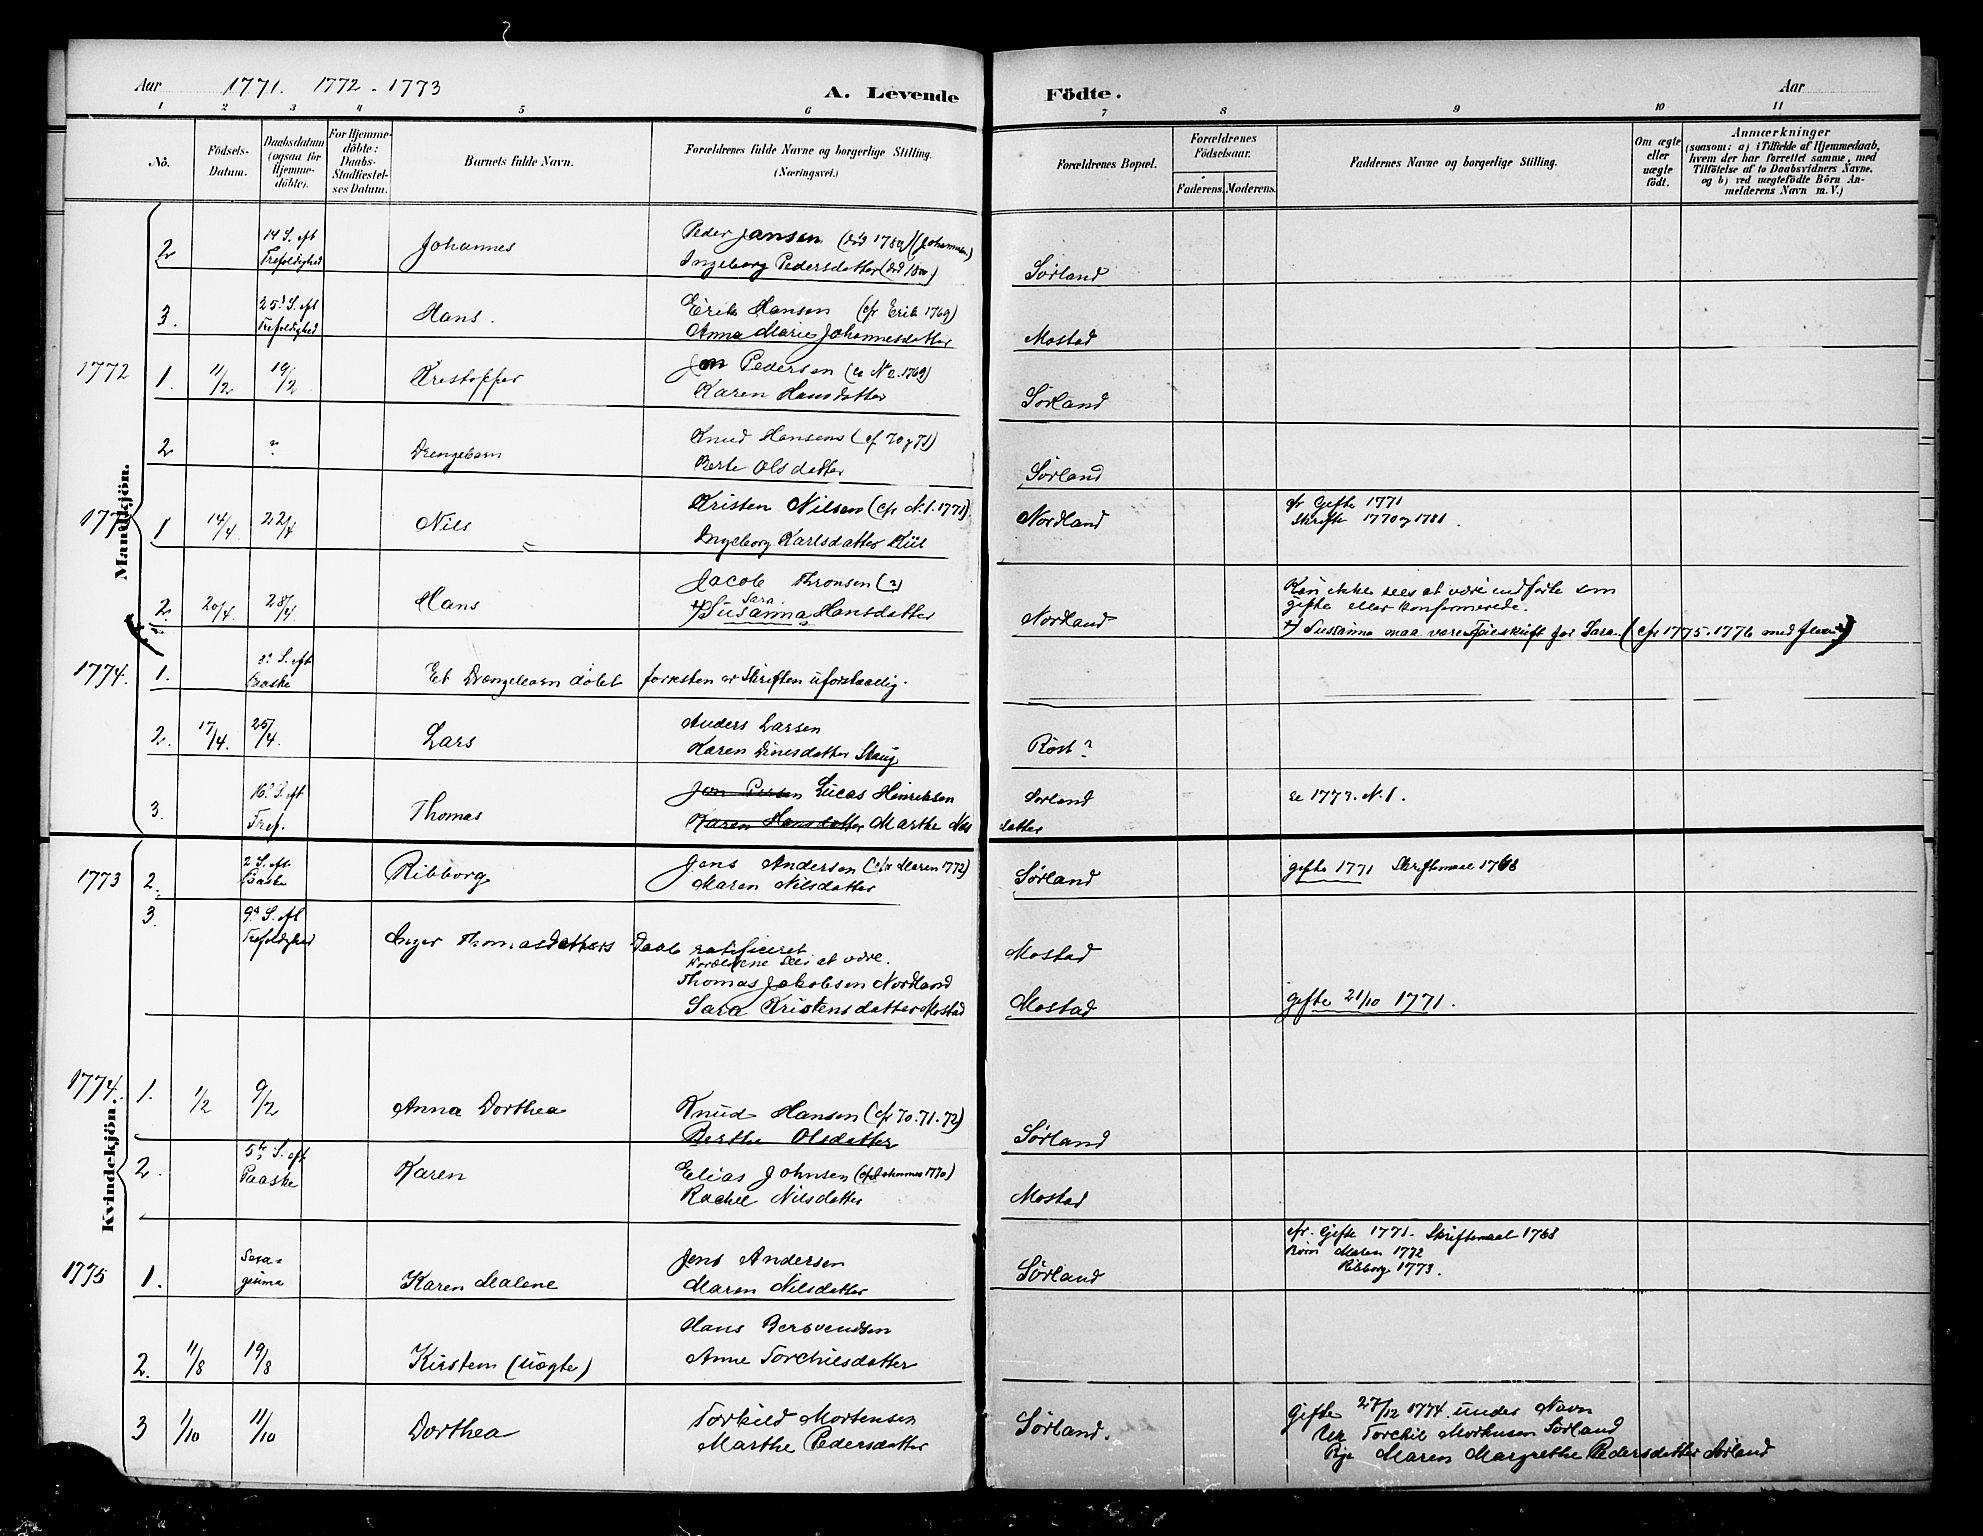 Aar 1771. 1772 - 1773 A. Levende Födte. Aar
1 2 3 4 5 6 7 8 9 10 11
No. Födsels-Datum. Daabsdatum (ogsaa for Hjemmedöbte). For Hjemmedöbte: Daabs-Stadfæstelses Datum. Barnets fulde Navn. Forældrenes fulde Navne og borgerlige Stilling. (Næringsvei.) Forældrenes Bopæl. Forældrenes Födselsaar. Faderens. Moderens. Faddernes Navne og borgerlige Stilling. Om ægte eller uægte födt. Anmærkninger
(saasom: a) i Tilfælde af Hjemmedaab, hvem der har forrettet samme, med Tilföielse af to Daabsvidners Navne, og b) ved uægtefödte Börn Anmelderens Navn m. V.)
Mandkjön.
2 14 S. eft Trefoldighed Johannes Peder Jansen (død 1789) (Johannesen)
Ingeborg Pedersdatter (død 1800) Sørland
3. 25' S. eft Trefoldighed Hans. Erik Hansen (cfr Erik 1769)
Anna Marie Johannesdatter Mostad
1772 1. 11/2 19/2 Kristoffer Jon Pedersen (cs No 2. 1769)
Karen Hansdatter Sørland
2 ? Drengebarn Knud Hansens (cf 70 og 71)
Berte Olsdatter Sørland
1 14/4 22/4 Nils Kristen Nilsen (cfr N. 1. 1771) Nordland cfr Gifte 1771
Ingeborg Karlsdatter Kiil Skrifte 1770 og 1781.
2. 20/4 28/4 Hans Jacob Thronsen (?)
Sara
+) Susanna Hansdatter Nordland Kan ikke sees at være indførte som
gifte eller konfirmerede.
+) Sussanna maa være Feilskrift for Sara (cfr 1775. 1776 med flere)
1774. 1. 3' S. eft Paaske Et Drengebarn døbt forresten er Skriften uforstaaelig.
2. 17/4. 25/4. Lars Anders Larsen
Karen Dinesdatter Skaug Röst?
3. 16' S. eft Tref. Thomas Jon Persen Lucas Henriksen Sørland se 1773. N. 1.
Karen Hansdatter Marthe Nils datter
Kvindekjön.
1773 2. 2 S. eft. Paaske Ribborg Jens Andersen (cfr Maren 1772)
Maren Nilsdatter Sørland gifte 1771 Skriftemaal 1768
3. 9' S. eft Trefoldighed Inger Thomasdatters Daab ratificeret
Forældrene sees at være. Mostad
Thomas Jakobsen Nordland
Sara Kristensdatter Mostad Mostad gifte 21/10 1771.
1774. 1. 1/2 9/2 Anna Dorthea Knud Hansen (cfr 70. 71. 72)
Berthe Olsdatter Sørland
2. 5te S. eft Paaske Karen Elias Johnsen (cfr Johannes 1770)
Rachel Nilsdatter Mostad
1775 1. Sexagesima Karen Malene Jens Andersen
Maren Nilsdatter Sørland cfr. Gifte 1771. Skriftemaal 1768
Børn Maren 1772
Ribborg 1773.
2. 11/8 19/8 Kirsten (uægte) Hans Bersvendsen
Anne Torchilsdatter
3 1/10 11/10 Dorthea Torkild Mortensen
Marthe Pedersdatter Sørland. Gifte 27/12 1774 under Navn
Uk Torchil Morthusen Sørland
Pige Maren Margrethe Pedersdatter Sørland